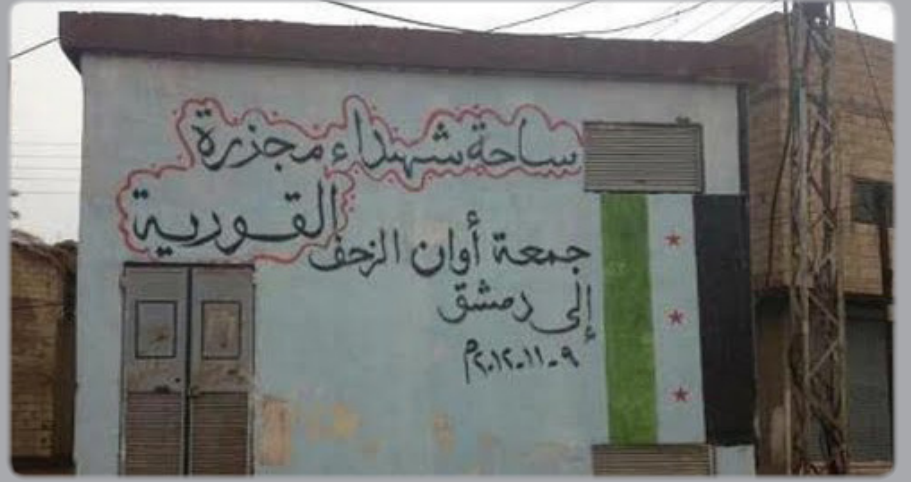 ساحة شهداء مجزرة
القورية
جمعة أوان الزحف
إلى دمشق
٩-١١-٢٠١٢م